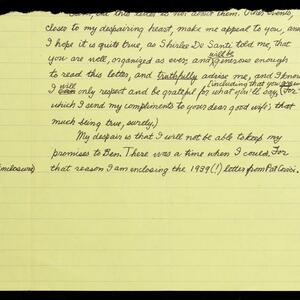 Also, but this letter is not about them. Other events,
closer to my despairing heart, make me appeal to you, and
I hope it is quite true, as Shirlee De Santi told me, that
you are well, organized as ever, and will be generous enough
to read this letter, and truthfully advise me, and I know
I will only respect and be grateful for what you'll say, (including that you ; (For
which I send my compliments to your dear good wife; that
much being true, surely.)
My despair is that I will not be able to keep my
promises to Ben. There was a time when I could. For
(enclosure) that reason I am enclosing the 1939 (!) letter from Pat Covici.